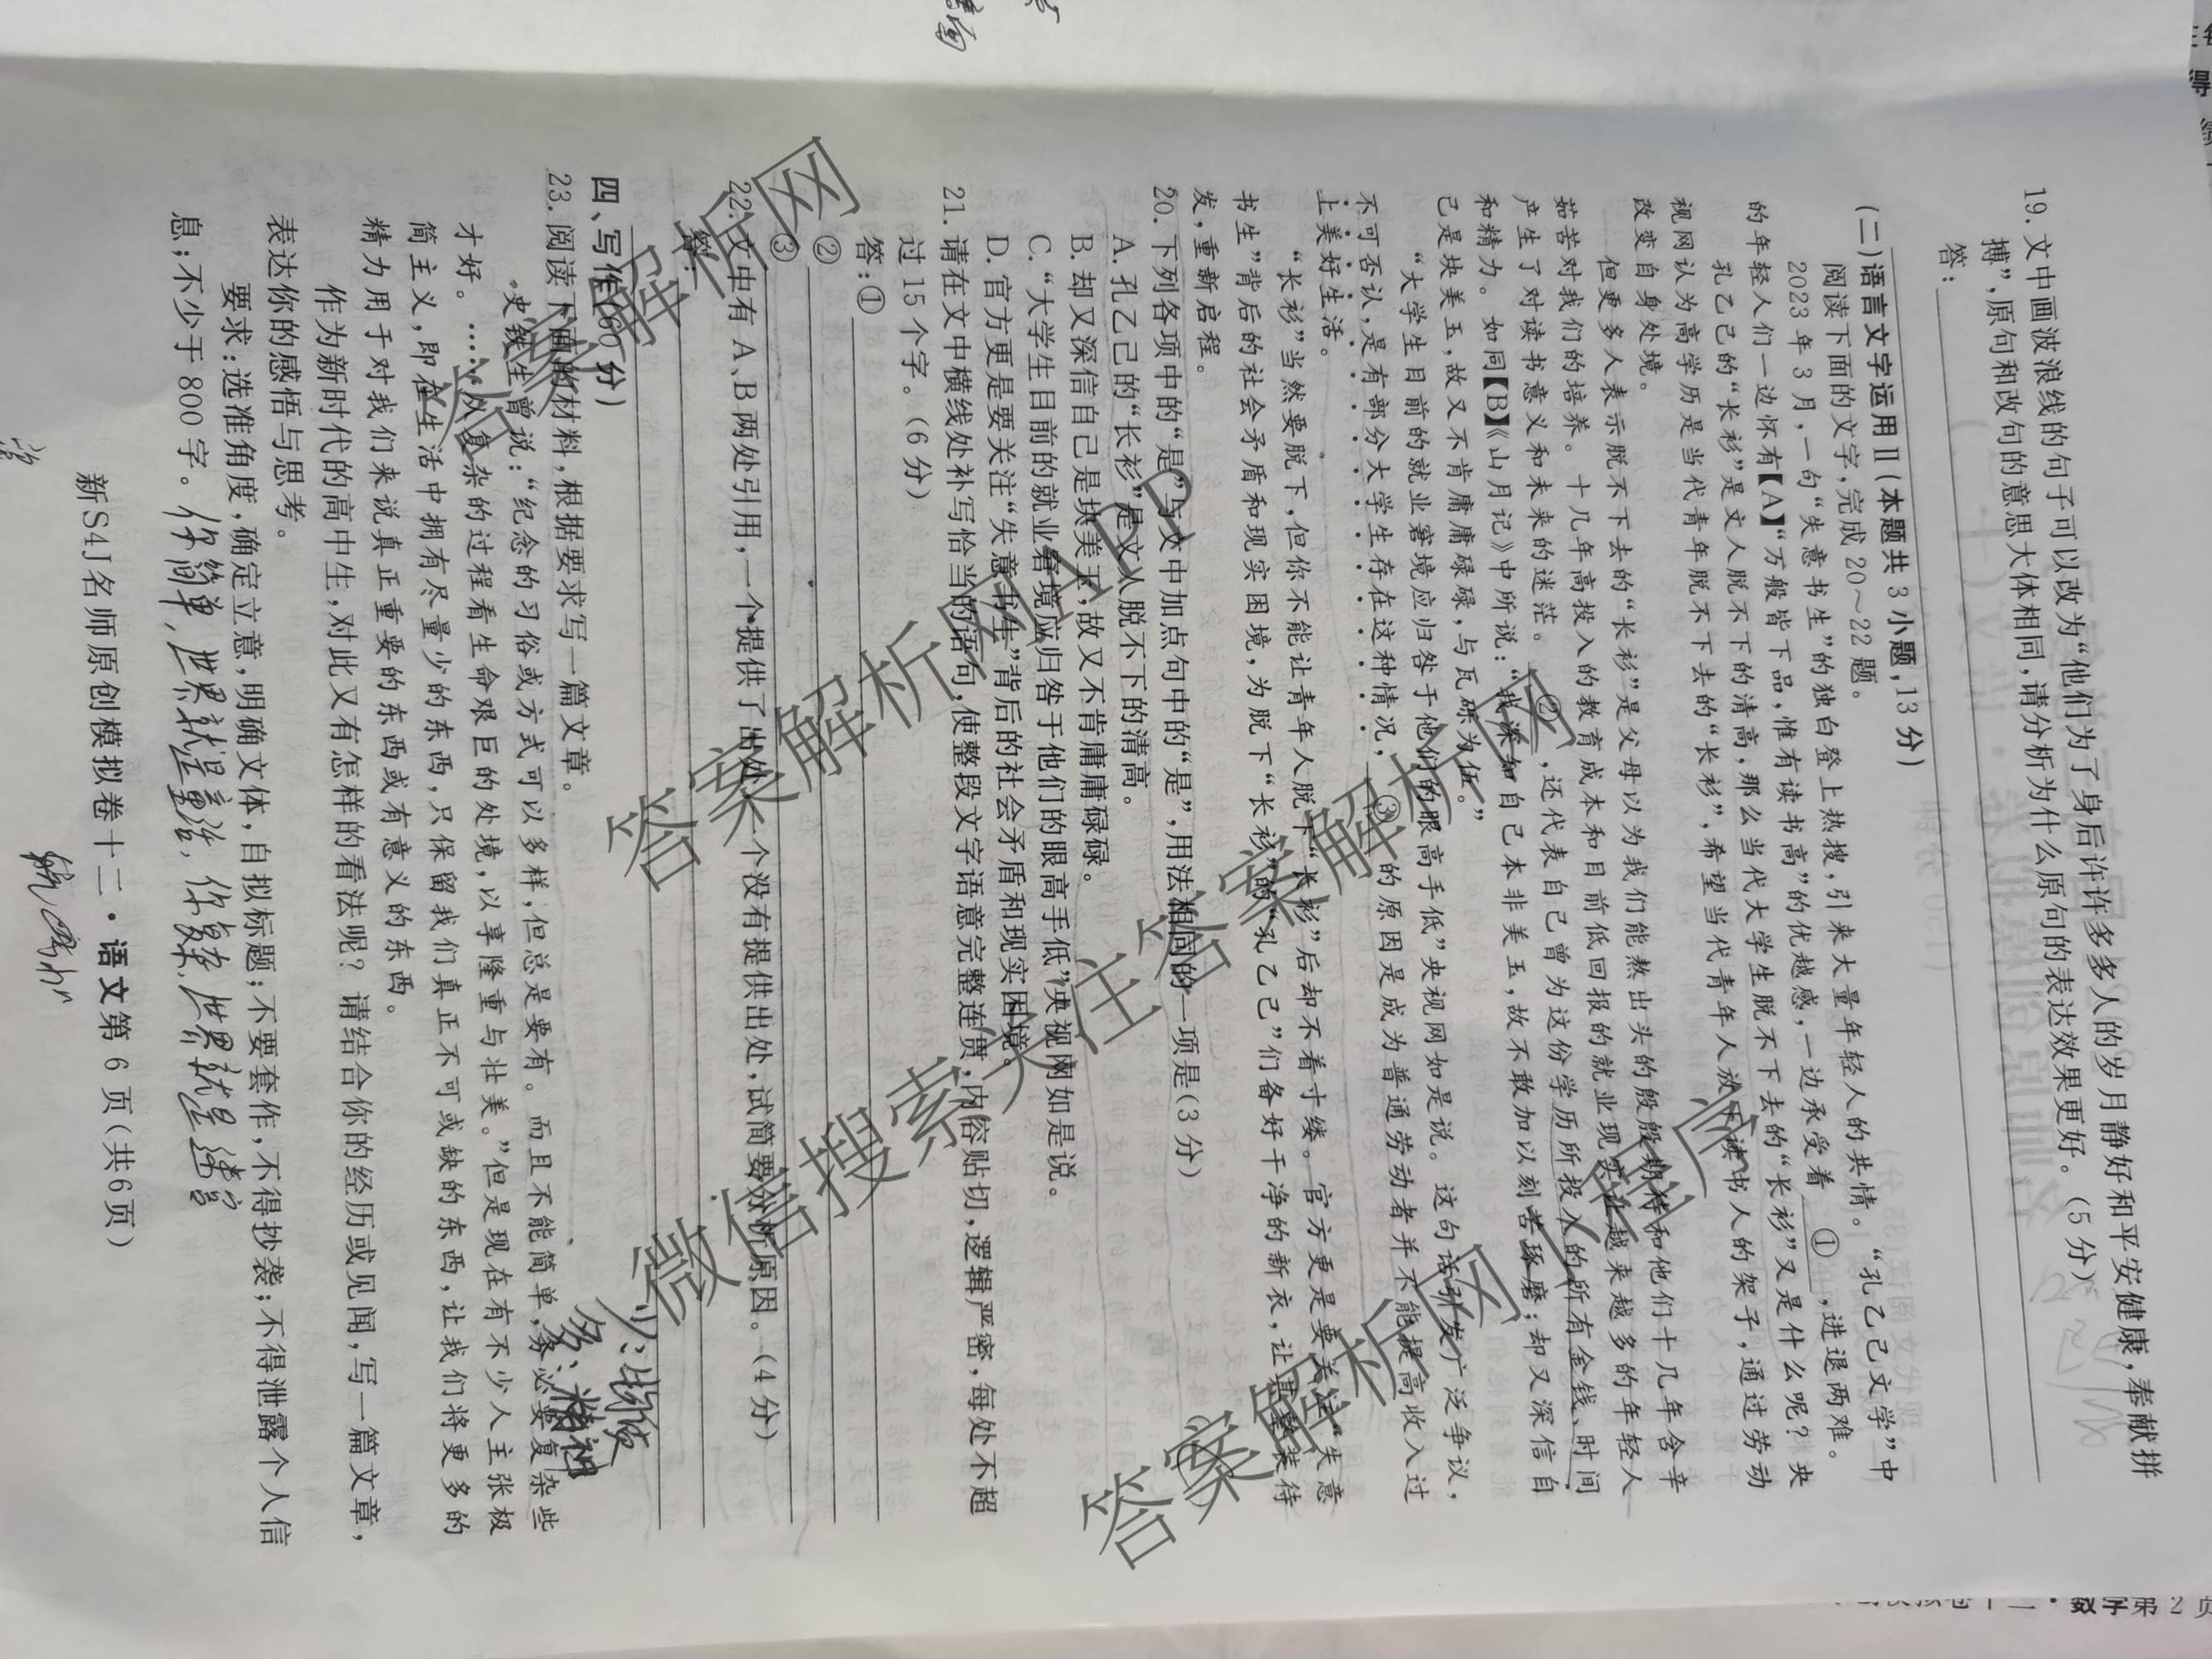 19. 文中画波浪线的句子可以改为“他们为了身后许许多多人的岁月静好和平安健康，奉献拼
搏”，原句和改句的意思大体相同，请分析为什么原句的表达效果更好。（5分）
答：
（二）语言文字运用Ⅱ（本题共3小题，13分）
阅读下面的文字，完成20～22题。
2023年3月，一句“失意书生”的独白登上热搜，引来大量年轻人的共情。“孔乙己文学”中
的年轻人们一边怀有【A】“万般皆下品，惟有读书高”的优越感，一边承受着 ① ，进退两难。
孔乙己的“长衫”是文人脱不下的清高，那么当代大学生脱不下去的“长衫”又是什么呢？央
视网认为高学历是当代青年脱不下去的“长衫”，希望当代青年人放下读书人的架子，通过劳动
改变自身处境。
但更多人表示脱不下去的“长衫”是父母以为我们能熬出头的殷殷期待和他们十几年含辛
茹苦对我们的培养。十几年高投入的教育成本和目前低回报的就业现实让越来越多的年轻人
产生了对读书意义和未来的迷茫。 ② ，还代表自己曾为这份学历所投入的所有金钱、时间
和精力。如同【B】《山月记》中所说：“我深知自己本非美玉，故不敢加以刻苦琢磨；却又深信自
己是块美玉，故又不肯庸庸碌碌，与瓦砾为伍。”
“大学生目前的就业窘境应归咎于他们的眼高手低”央视网如是说。这句话引发广泛争议，
不可否认，是有部分大学生存在这种情况， ③ 的原因是成为普通劳动者并不能提高收入过
上美好生活。
“长衫”当然要脱下，但你不能让青年人脱下“长衫”后却不着寸缕。官方更是要关注“失意
书生”背后的社会矛盾和现实困境，为脱下“长衫”的“孔乙己”们备好干净的新衣，让其整装待
发，重新启程。
20. 下列各项中的“是”与文中加点句中的“是”，用法相同的一项是（3分）
A. 孔乙己的“长衫”是文人脱不下的清高。
B. 却又深信自己是块美玉，故又不肯庸庸碌碌。
C. “大学生目前的就业窘境应归咎于他们的眼高手低”央视网如是说。
D. 官方更是要关注“失意书生”背后的社会矛盾和现实困境。
21. 请在文中横线处补写恰当的语句，使整段文字语意完整连贯，内容贴切，逻辑严密，每处不超
过15个字。（6分）
答：①
②
③
22. 文中有A、B两处引用，一个提供了出处，一个没有提供出处，试简要分析原因。（4分）
答：
四、写作（60分）
23. 阅读下面的材料，根据要求写一篇文章。
史铁生曾说：“纪念的习俗或方式可以多样，但总是要有。而且不能简单，务必要复杂些
才好。……从复杂的过程看生命艰巨的处境，以享隆重与壮美。”但是现在有不少人主张极
简主义，即在生活中拥有尽量少的东西，只保留我们真正不可或缺的东西，让我们将更多的
精力用于对我们来说真正重要的东西或有意义的东西。
作为新时代的高中生，对此又有怎样的看法呢？请结合你的经历或见闻，写一篇文章，
表达你的感悟与思考。
要求：选准角度，确定立意，明确文体，自拟标题；不要套作，不得抄袭；不得泄露个人信
息；不少于800字。
你简单，世界就是童话，你复杂，世界就是迷宫
新S4J名师原创模拟卷十二·语文第6页（共6页）
微信搜索关注答案解析网
答案解析网
数学第2页